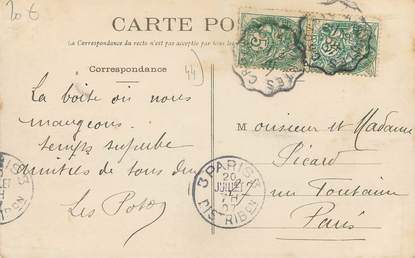 20 €
CARTE PO
La Correspondance du recto n'est pas acceptée par tous
Correspondance
44
La boîte où nous
mangeons.
temps superbe
amitiés de tous deux
Les
M onsieur et Madame
Sicard
rue Fontaine
Paris
PARIS
3 3
20
JUILLET
DISTRIBON